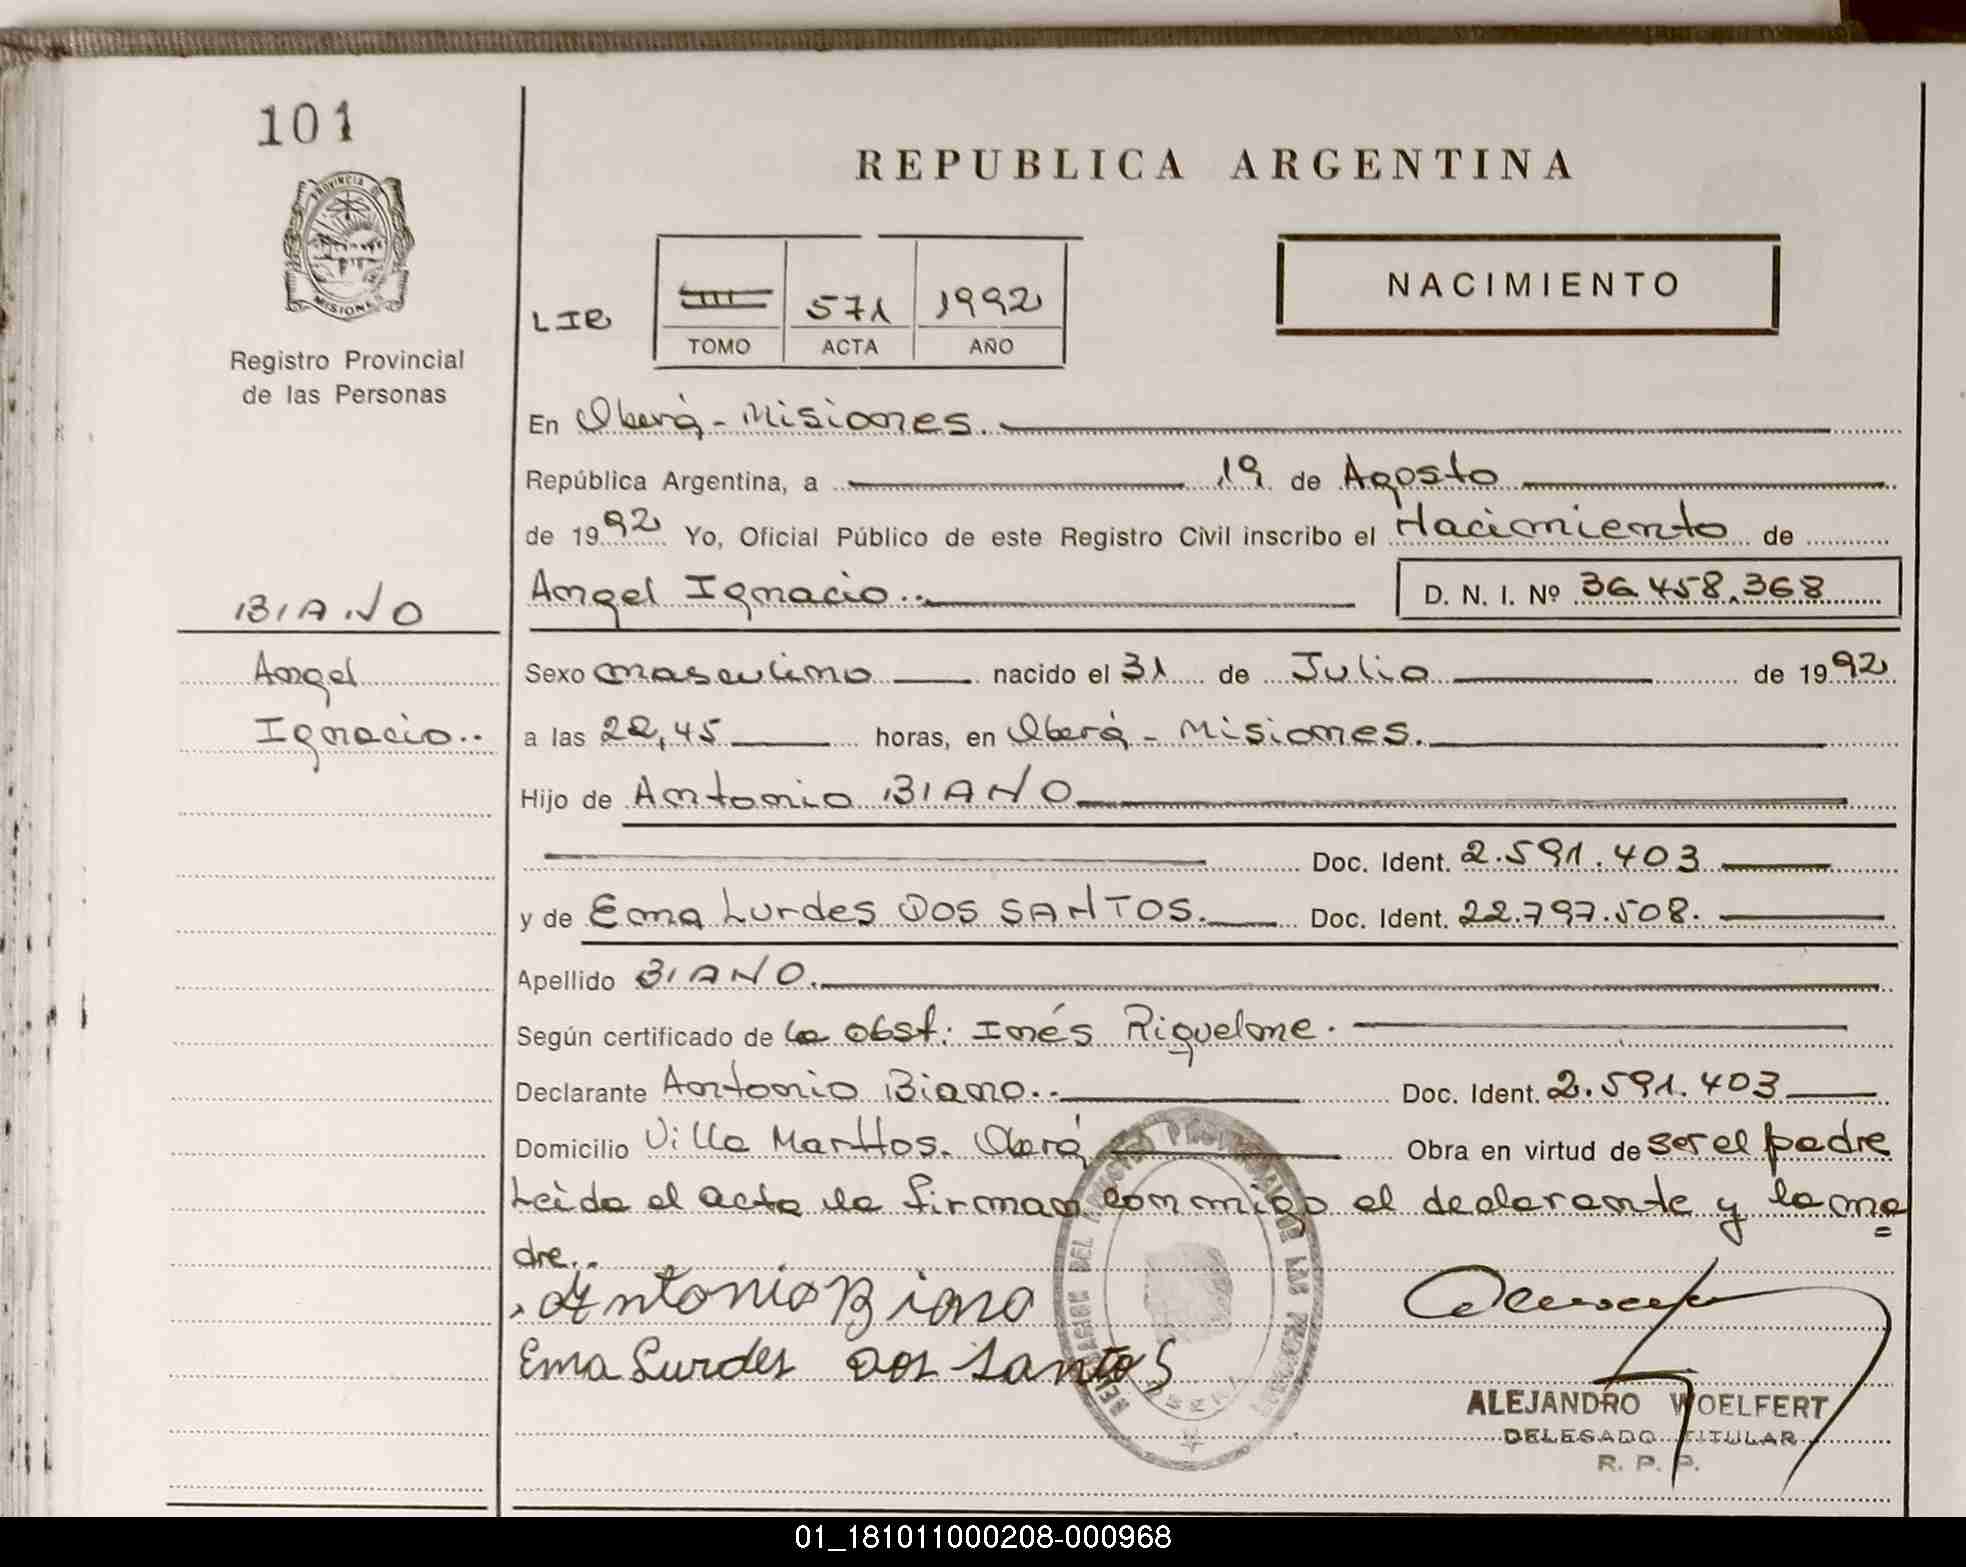 101
PROVINCIA DE
MISIONES
Registro Provincial
de las Personas
REPUBLICA ARGENTINA
NACIMIENTO
LIB III 571 1992
TOMO ACTA AÑO
En Oberá - Misiones.
República Argentina, a 19 de Agosto
de 1992 Yo, Oficial Público de este Registro Civil inscribo el Nacimiento de
Angel Ignacio.. D. N. I. Nº 36.458.368
BIANO
Angel
Ignacio..
Sexo masculino nacido el 31 de Julio de 1992
a las 22,45 horas, en Oberá - Misiones.
Hijo de Antonio BIANO
Doc. Ident. 2.591.403
y de Ema Lurdes DOS SANTOS. Doc. Ident. 22.797.508.
Apellido BIANO.
Según certificado de la obst: Inés Riquelme.
Declarante Antonio Biano.. Doc. Ident. 2.591.403
Domicilio Villa Marttos. Oberá Obra en virtud de ser el padre
Leida el acta la firman conmigo el declarante y la ma=
dre..
Antonio Biano
Ema Lurdes Dos Santos
ALEJANDRO WOELFERT
DELEGADO TITULAR
R. P. P.
01_181011000208-000968